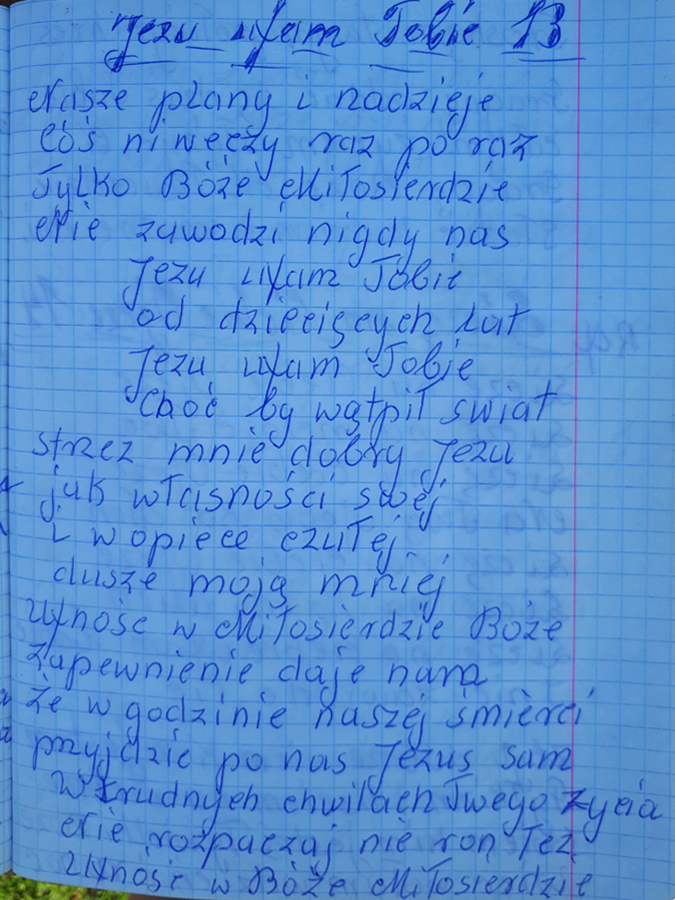 Jezu ufam Tobie 13
Nasze plany i nadzieje
Coś niweczy raz po raz
Tylko Boże Miłosierdzie
Nie zawodzi nigdy nas
Jezu ufam Tobie
od dziecięcych lat
Jezu ufam Tobie
Choć by wątpił świat
strzeż mnie dobry Jezu
jak własności swej
i w opiece czułej
dusze moją mniej
Ufność w Miłosierdzie Boże
Zapewnienie daje nam
Że w godzinie naszej śmierci
przyjdzie po nas Jezus sam
W trudnych chwilach Twego życia
Nie rozpaczaj nie roń łez
Ufność w Boże Miłosierdzie